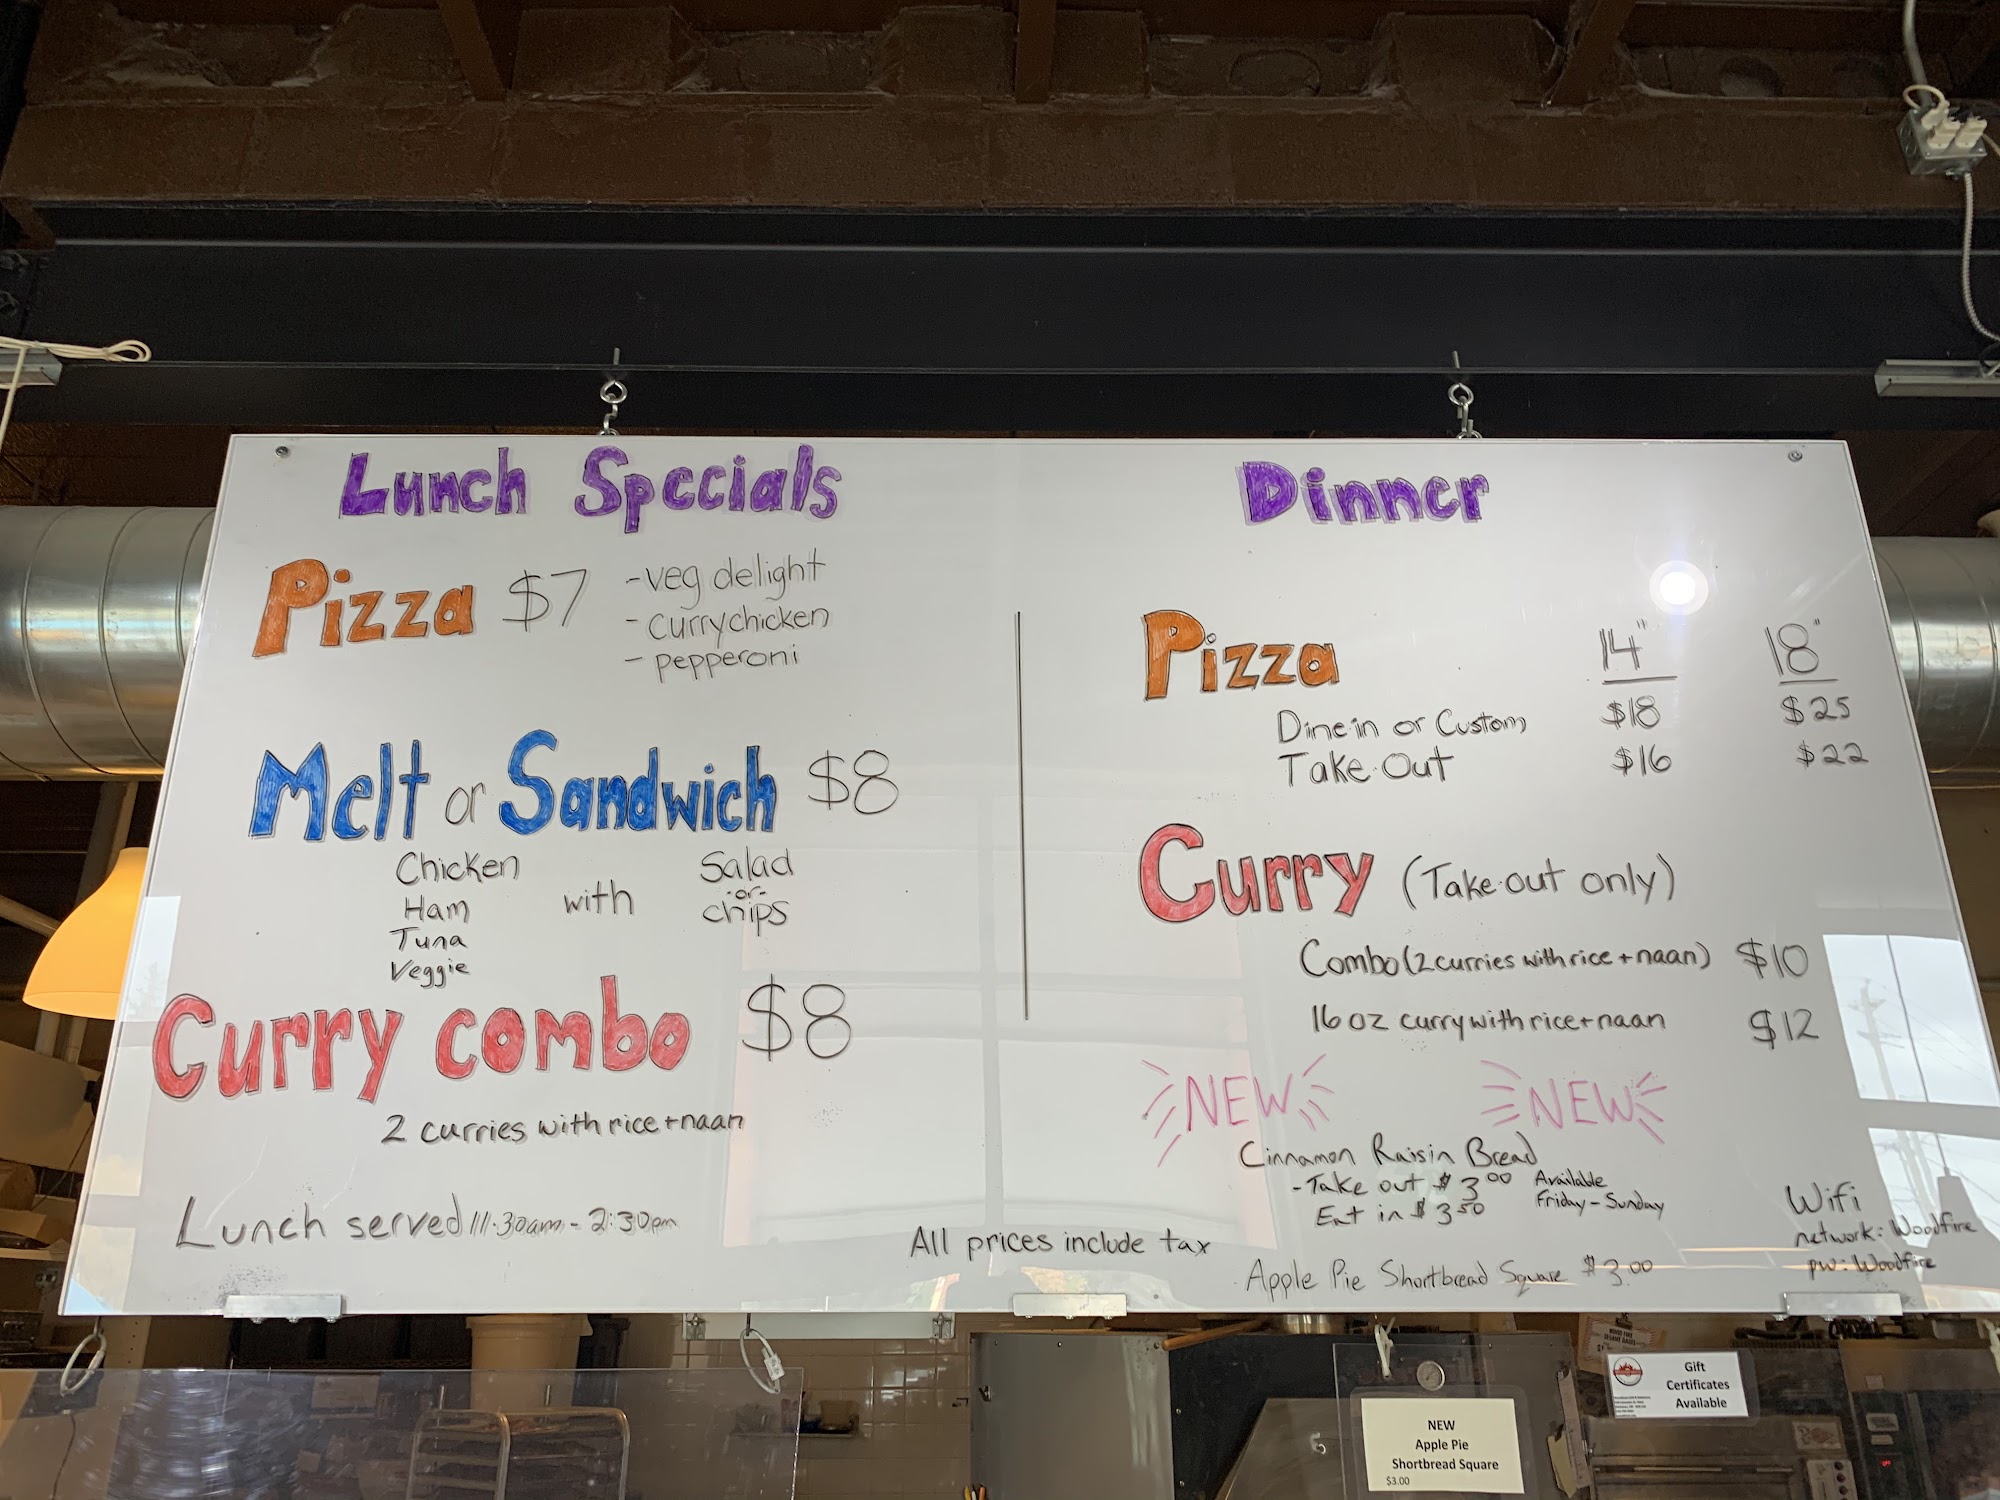 Lunch Specials
Pizza $7
-veg delight
- curry chicken
- pepperoni
Melt or Sandwich $8
Chicken
Ham
Tuna
Veggie
with
Salad
-or-
chips
Curry combo $8
2 curries with rice + naan
Lunch served 11:30am - 2:30pm
All prices include tax
Dinner
Pizza 14" 18"
Dine in or Custom $18 $25
Take Out $16 $22
Curry (Take out only)
Combo (2 curries with rice + naan) $10
16 oz curry with rice + naan $12
NEW NEW
Cinnamon Raisin Bread
- Take out $3.00
Eat in $3.50
Available
Friday - Sunday
Apple Pie Shortbread Square $3.00
Wifi
network: Woodfire
pw: Woodfire
NEW
Apple Pie
Shortbread Square
$3.00
Gift
Certificates
Available